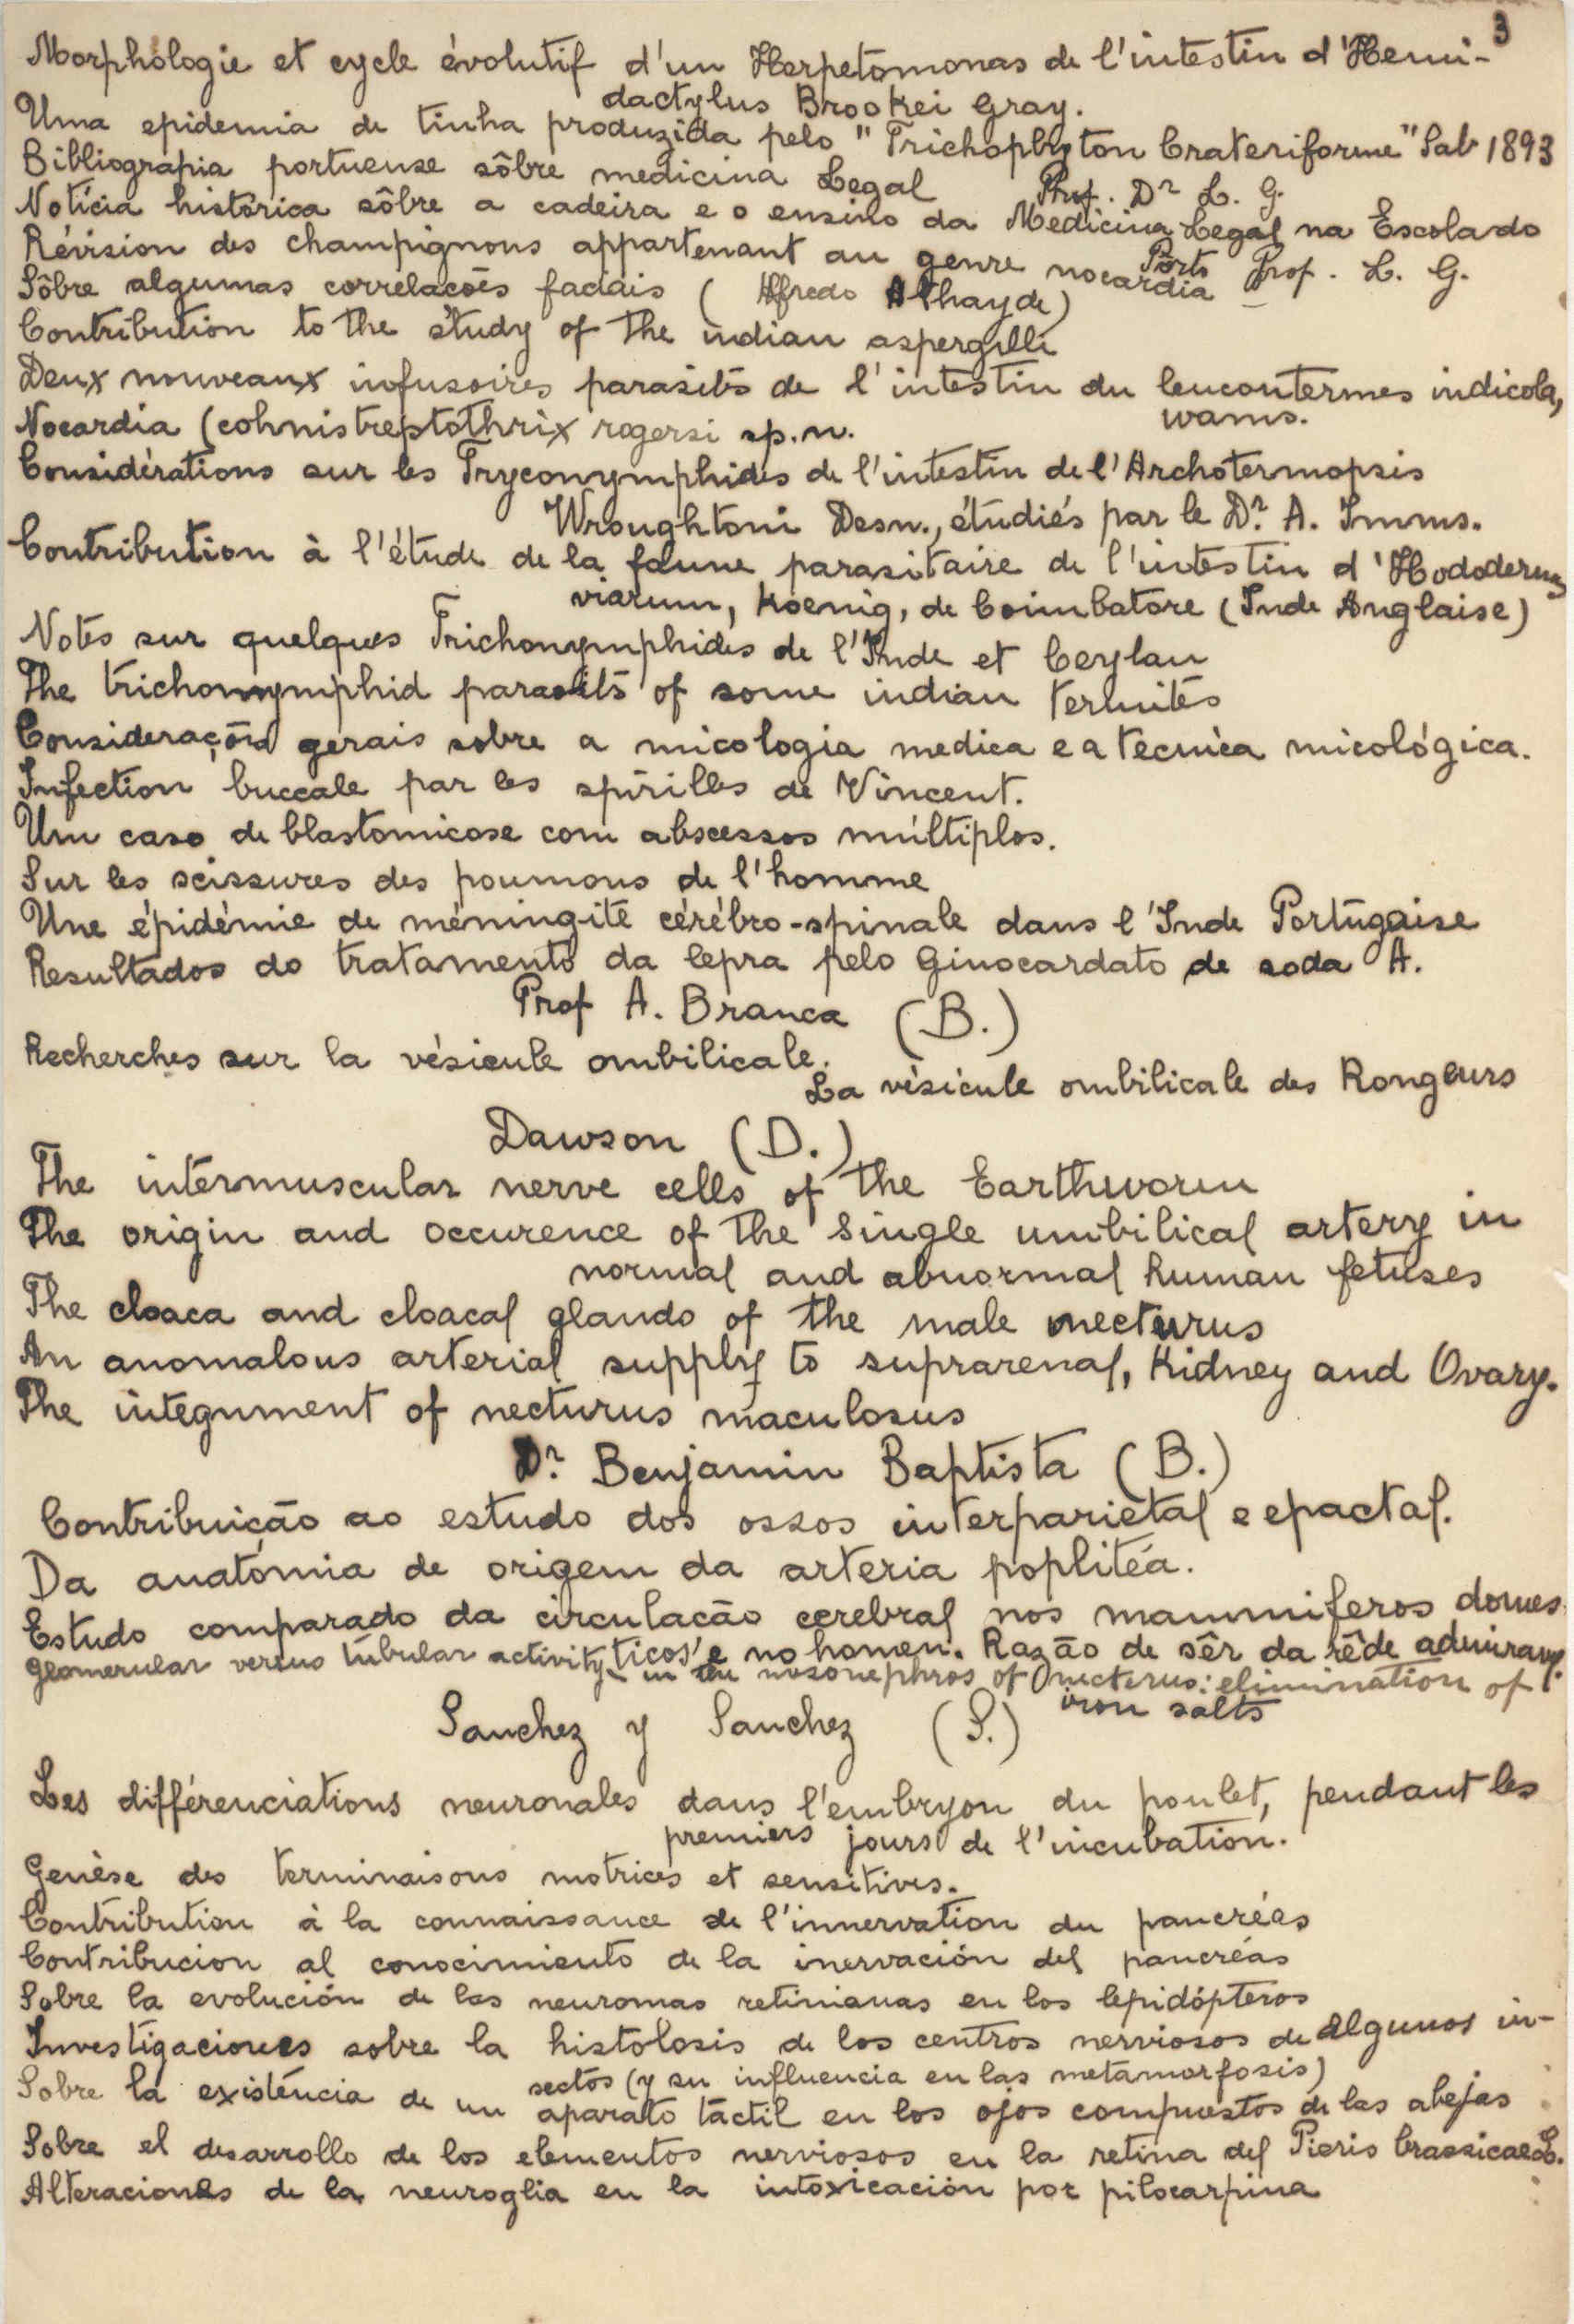 3
Morphologie et cycle évolutif d'un Herpetomonas de l'intestin d'Hemi-
dactylus Brookei Gray.
Uma epidemia de tinha produzida pelo "Trichophyton Crateriforme" Sab 1893
Bibliografia portuense sôbre medicina Legal Prof. Dr L. G.
Notícia histórica sôbre a cadeira e o ensino da Medicina Legal na Escola do
Porto Prof. L. G.
Révision des champignons appartenant au genre nocardia
Sôbre algumas correlacões faciais (Alfredo Athayde)
Contribution to the study of the indian aspergilli
Deux nouveaux infusoires parasites de l'intestin du leucontermes indicola,
wams.
Nocardia (cohnistreptothrix rogersi sp.n.
Considérations sur les Tryconymphides de l'intestin de l'Archotermopsis
Wroughtoni Desn., étudiés par le Dr. A. Imms.
Contribution à l'étude de la faune parasitaire de l'intestin d'Hodoterms
viarum, Koenig, de Coimbatore (Inde Anglaise)
Notes sur quelques Trichonymphides de l'Inde et Ceylan
The trichonymphid parasits of some indian termites
Considerações gerais sobre a micologia medica e a tecnica micológica.
Infection buccale par les spirilles de Vincent.
Um caso de blastomicose com abscessos múltiplos.
Sur les scissures des poumons de l'homme
Une épidémie de méningite cérébro-spinale dans l'Inde Portugaise
Resultados do tratamento da lepra pelo Ginocardato de soda A.
Prof A. Branca (B.)
Recherches sur la vésicule ombilicale.
La vésicule ombilicale des Rongeurs
Dawson (D.)
The intermuscular nerve cells of the Earthworm
The origin and occurence of the single umbilical artery in
normal and abnormal human fetuses
The cloaca and cloacal glands of the male necturus
An anomalous arterial supply to suprarenal, Kidney and Ovary.
The integument of necturus maculosus
Dr. Benjamin Baptista (B.)
Contribuição ao estudo dos ossos interparietal e epactal.
Da anatómia de origem da arteria poplitéa.
Estudo comparado da circulacão cerebral nos mammiferos domes
ticos e no homen. Razão de sêr da rêde admiravel.
Glomerular versus túbular activity in the mesonephros of necterus: elimination of
iron salts
Sanchez y Sanchez (S.)
Les différenciations neuronales dans l'embryon du poulet, pendant les
premiers jours de l'incubation.
Genèse des terminaisons motrices et sensitives.
Contribution à la connaissance de l'innervation du pancréas
Contribucion al conocimiento de la inervación del pancréas
Sobre la evolución de las neuromas retinianas en los lepidópteros
Investigaciones sobre la histolosis de los centros nerviosos de algunos in-
sectos (y su influencia en las metamorfosis)
Sobre la existéncia de un aparato táctil en los ojos compuestos de las abejas
Sobre el desarrollo de los elementos nerviosos en la retina del Pieris brassicae L.
Alteraciones de la neuroglia en la intoxicación por pilocarpina